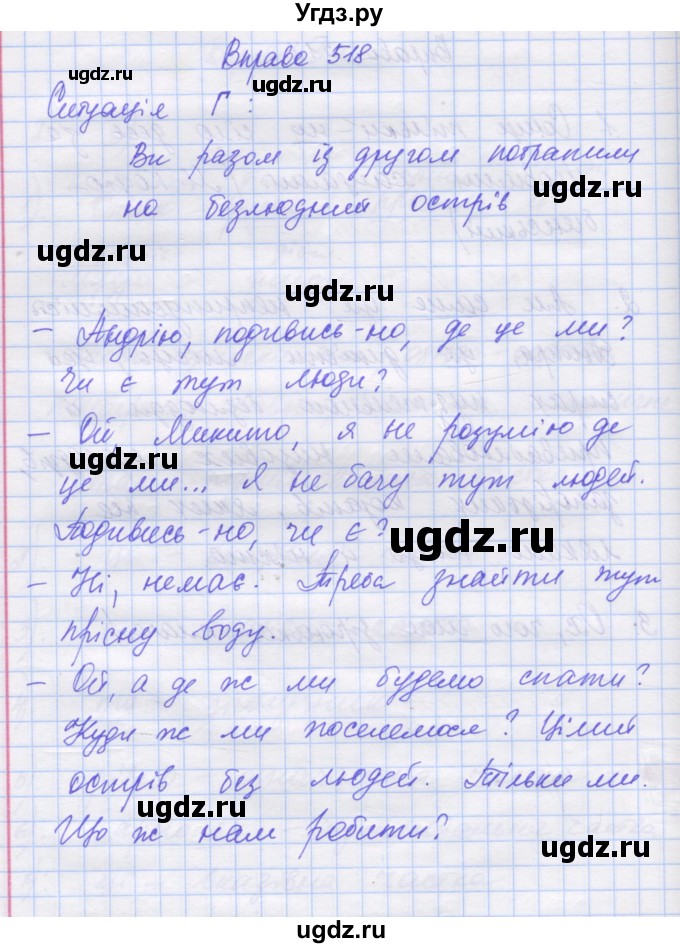 Угдз.ру
Вправа 518
ugdz.ru ugdz.ru
Ситуація Г :
Ви разом із другом потрапили
ugdz.ru
на безлюдний острів
ugdz.ru
ugdz.ru
– Андрію, подивись-но, де це ми?
Чи є тут люди?
ugdz.ru
– Ой, Микито, я не розумію де
ugdz.ru
це ми... Я не бачу тут людей.
Подивись-но, чи є?
ugdz.ru
– Ні, немає. Треба знайти тут
ugdz.ru
прісну воду.
ugdz.ru
– Ой, а де ж ми будемо спати?
Куди ж ми поселемося? Цілий
острів без людей. Тільки ми.
ugdz.ru
Що ж нам робити?
ugdz.ru
ugdz.ru
ugdz.ru